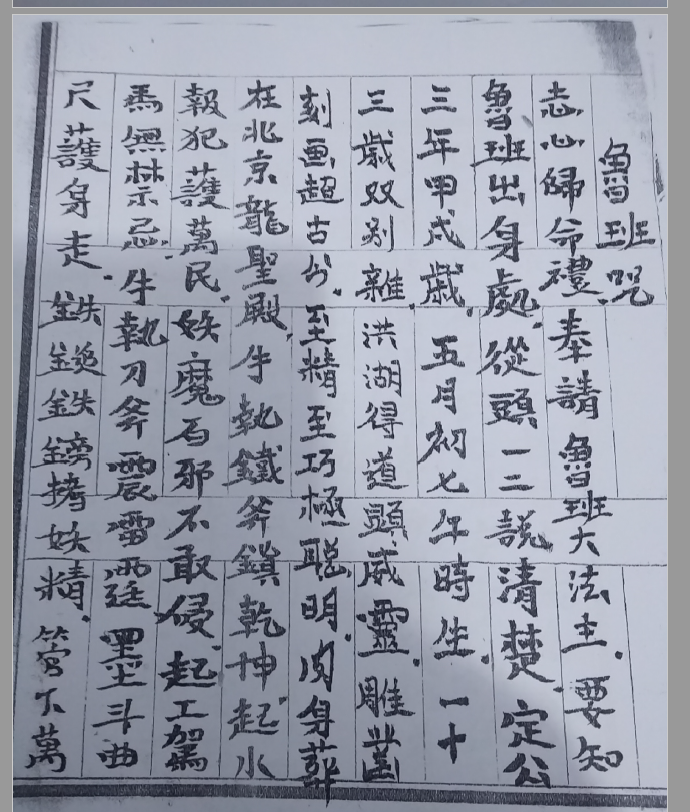 魯班咒
志心歸命禮.奉請魯班大法主.要知
魯班出身處.從頭一二説清楚.定公
三年甲戌歲.五月初七午時生.一十
三歲双别離.洪湖得道顕威靈.雕
刻画超古分.至精至巧極聰明.肉身葬
在北京龍聖殿手執鐵斧鎖乾坤.起水
報犯護萬民.妖魔百邪不敢侵.起工駕
馬無禁忌.手執刀斧震雷霆墨斗曲
尺護身走.鉄 鉄 拷妖精. 下萬